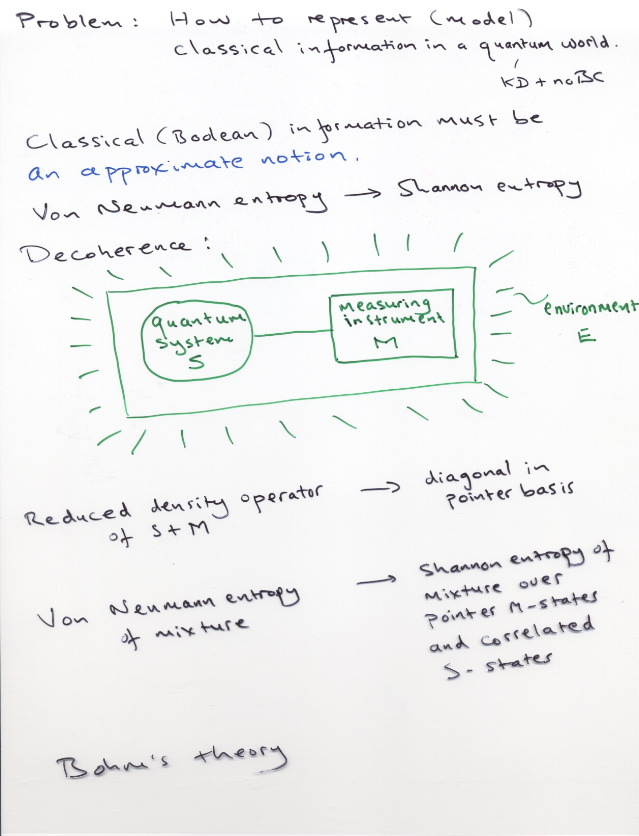 Problem: How to represent (model)
classical information in a quantum world.
KD + no BC
Classical (Boolean) information must be
an approximate notion.
Von Neumann entropy → Shannon entropy
Decoherence:
quantum
system
S
measuring
instrument
M
environment
E
Reduced density operator
of S+M
→ diagonal in
pointer basis
Von Neumann entropy
of mixture
→ Shannon entropy of
mixture over
pointer M-states
and correlated
S-states
Bohm's theory